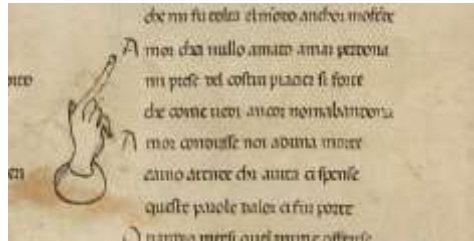 che mi fu tolta el modo anchor mofende
Amor cha nullo amato amar perdona
mi prese del costui piacer si forte
che come vedi ancor nomabandona
Amor condusse noi aduna morte
caino attende chi auita ci spense
queste parole da lor ci fur porte
Quando intesi quel anime offense